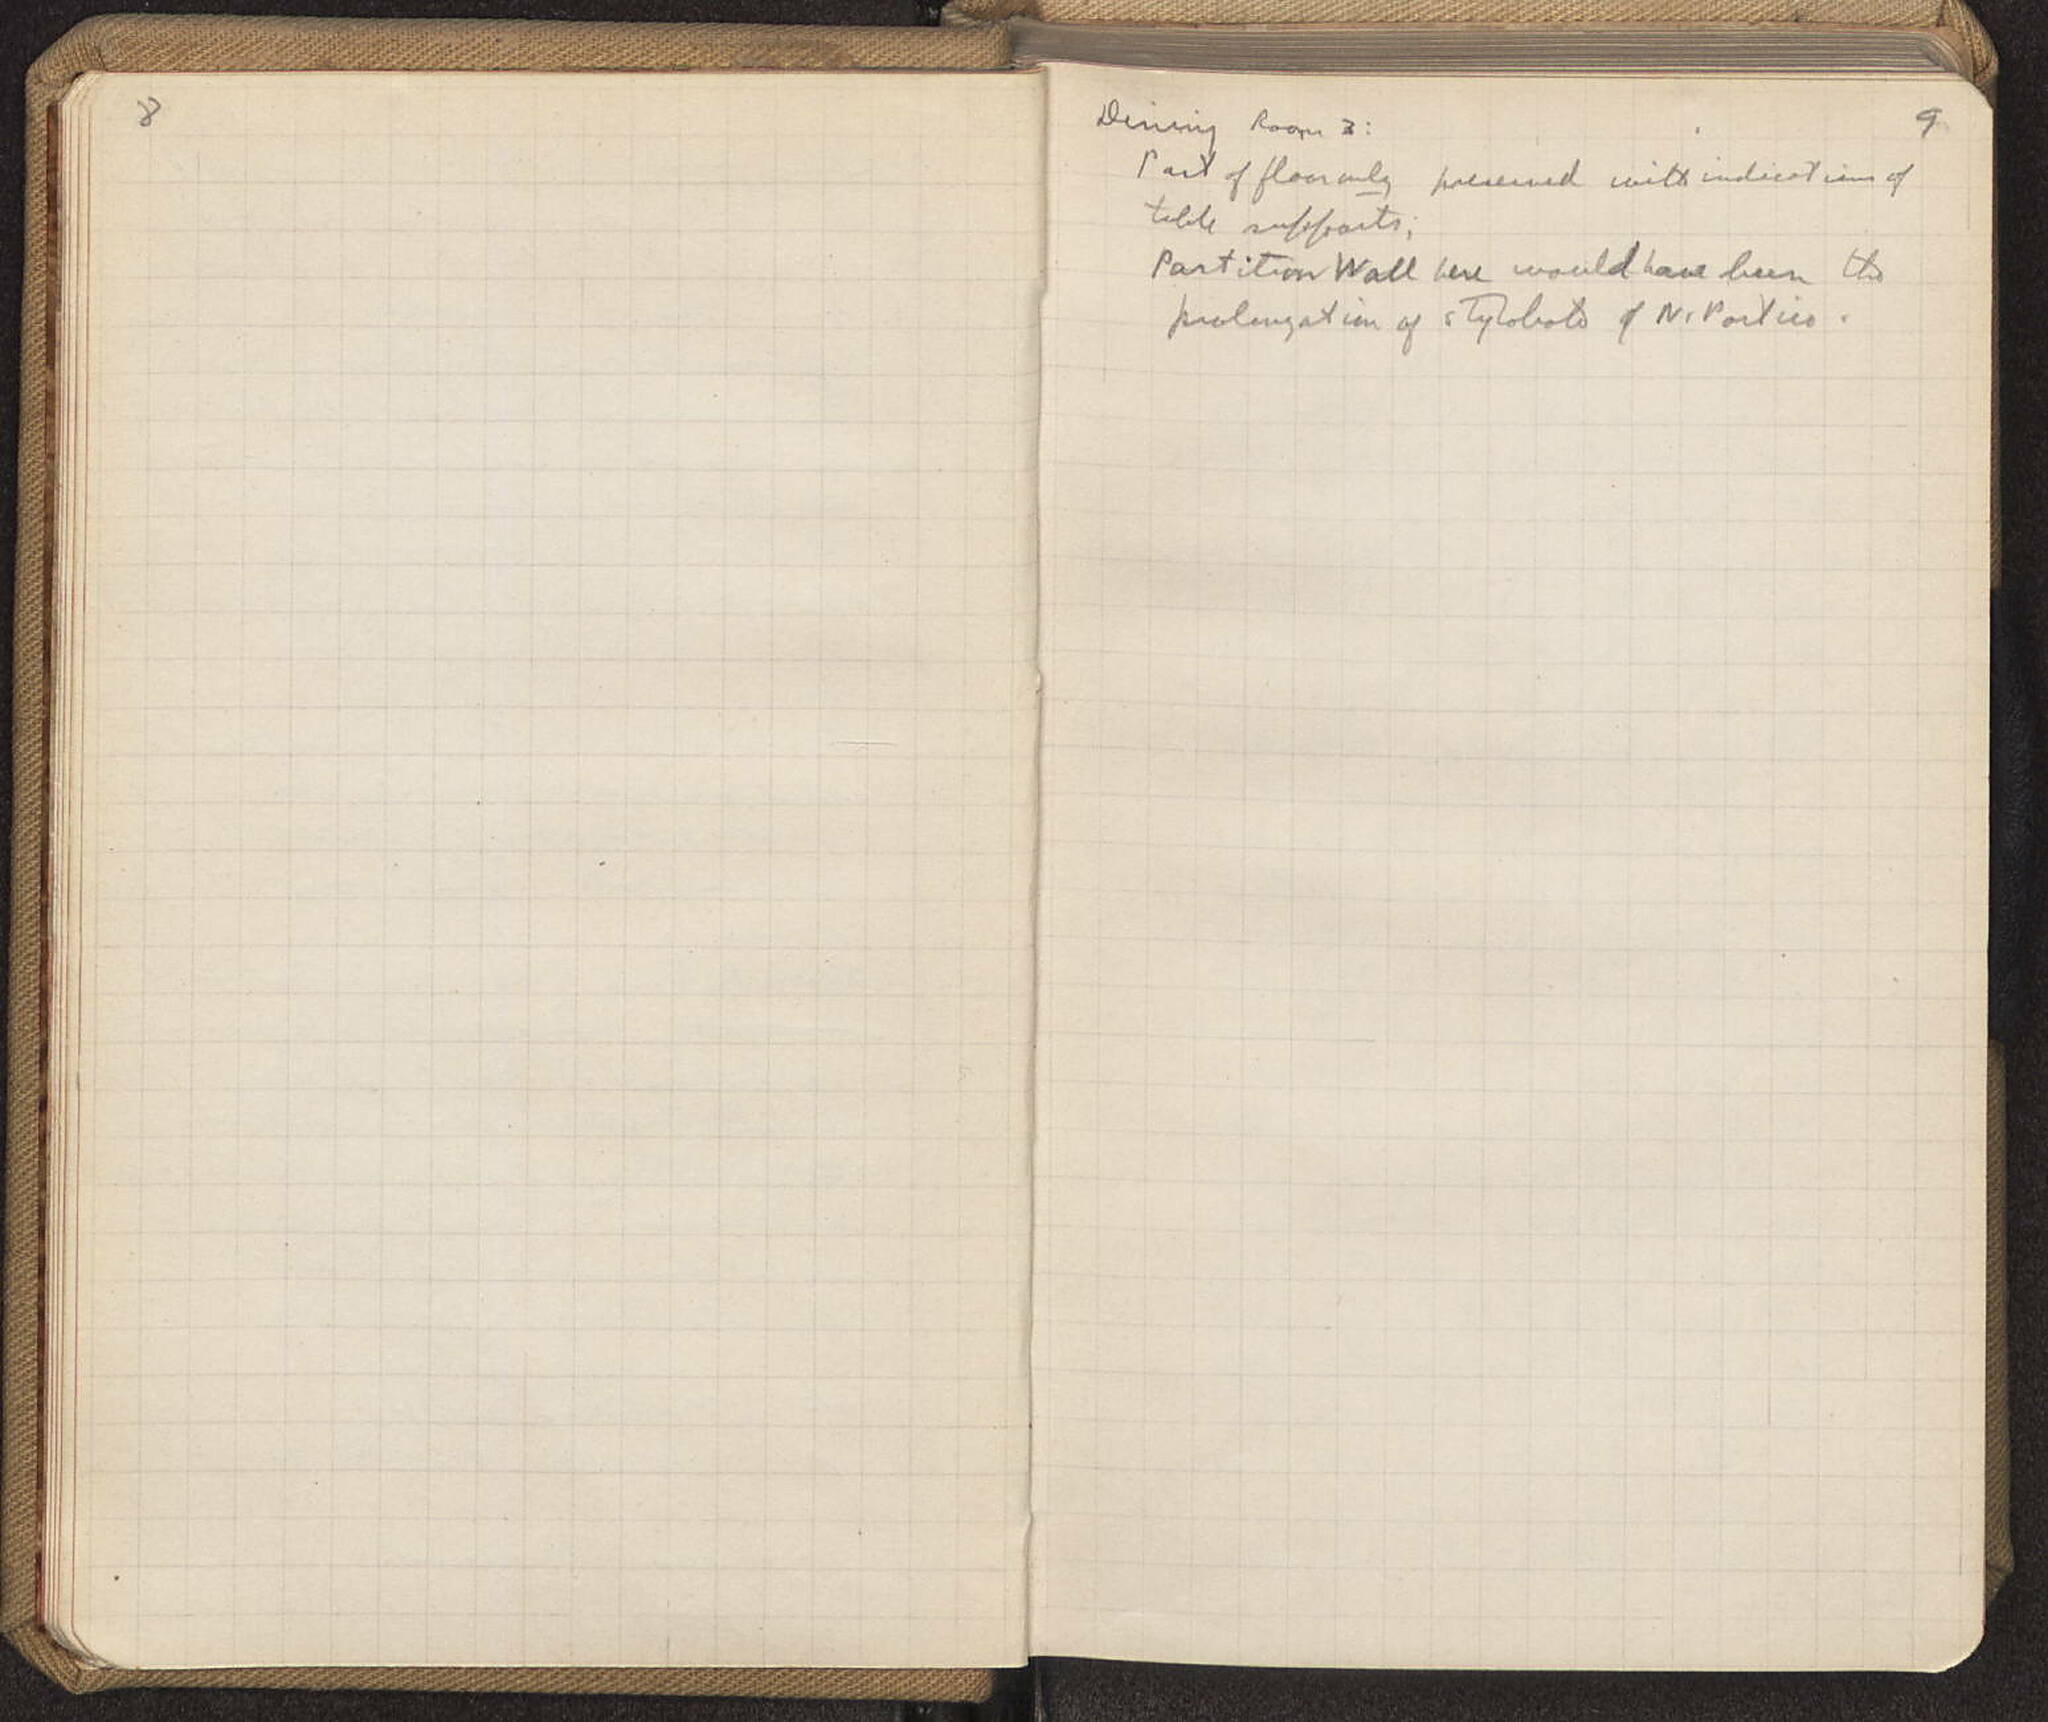 8
9
Dining Room 3:
Part of floor only preserved with indications of
table supports;
Partition Wall here would have been the
prolongation of stylobate of N. Portico.